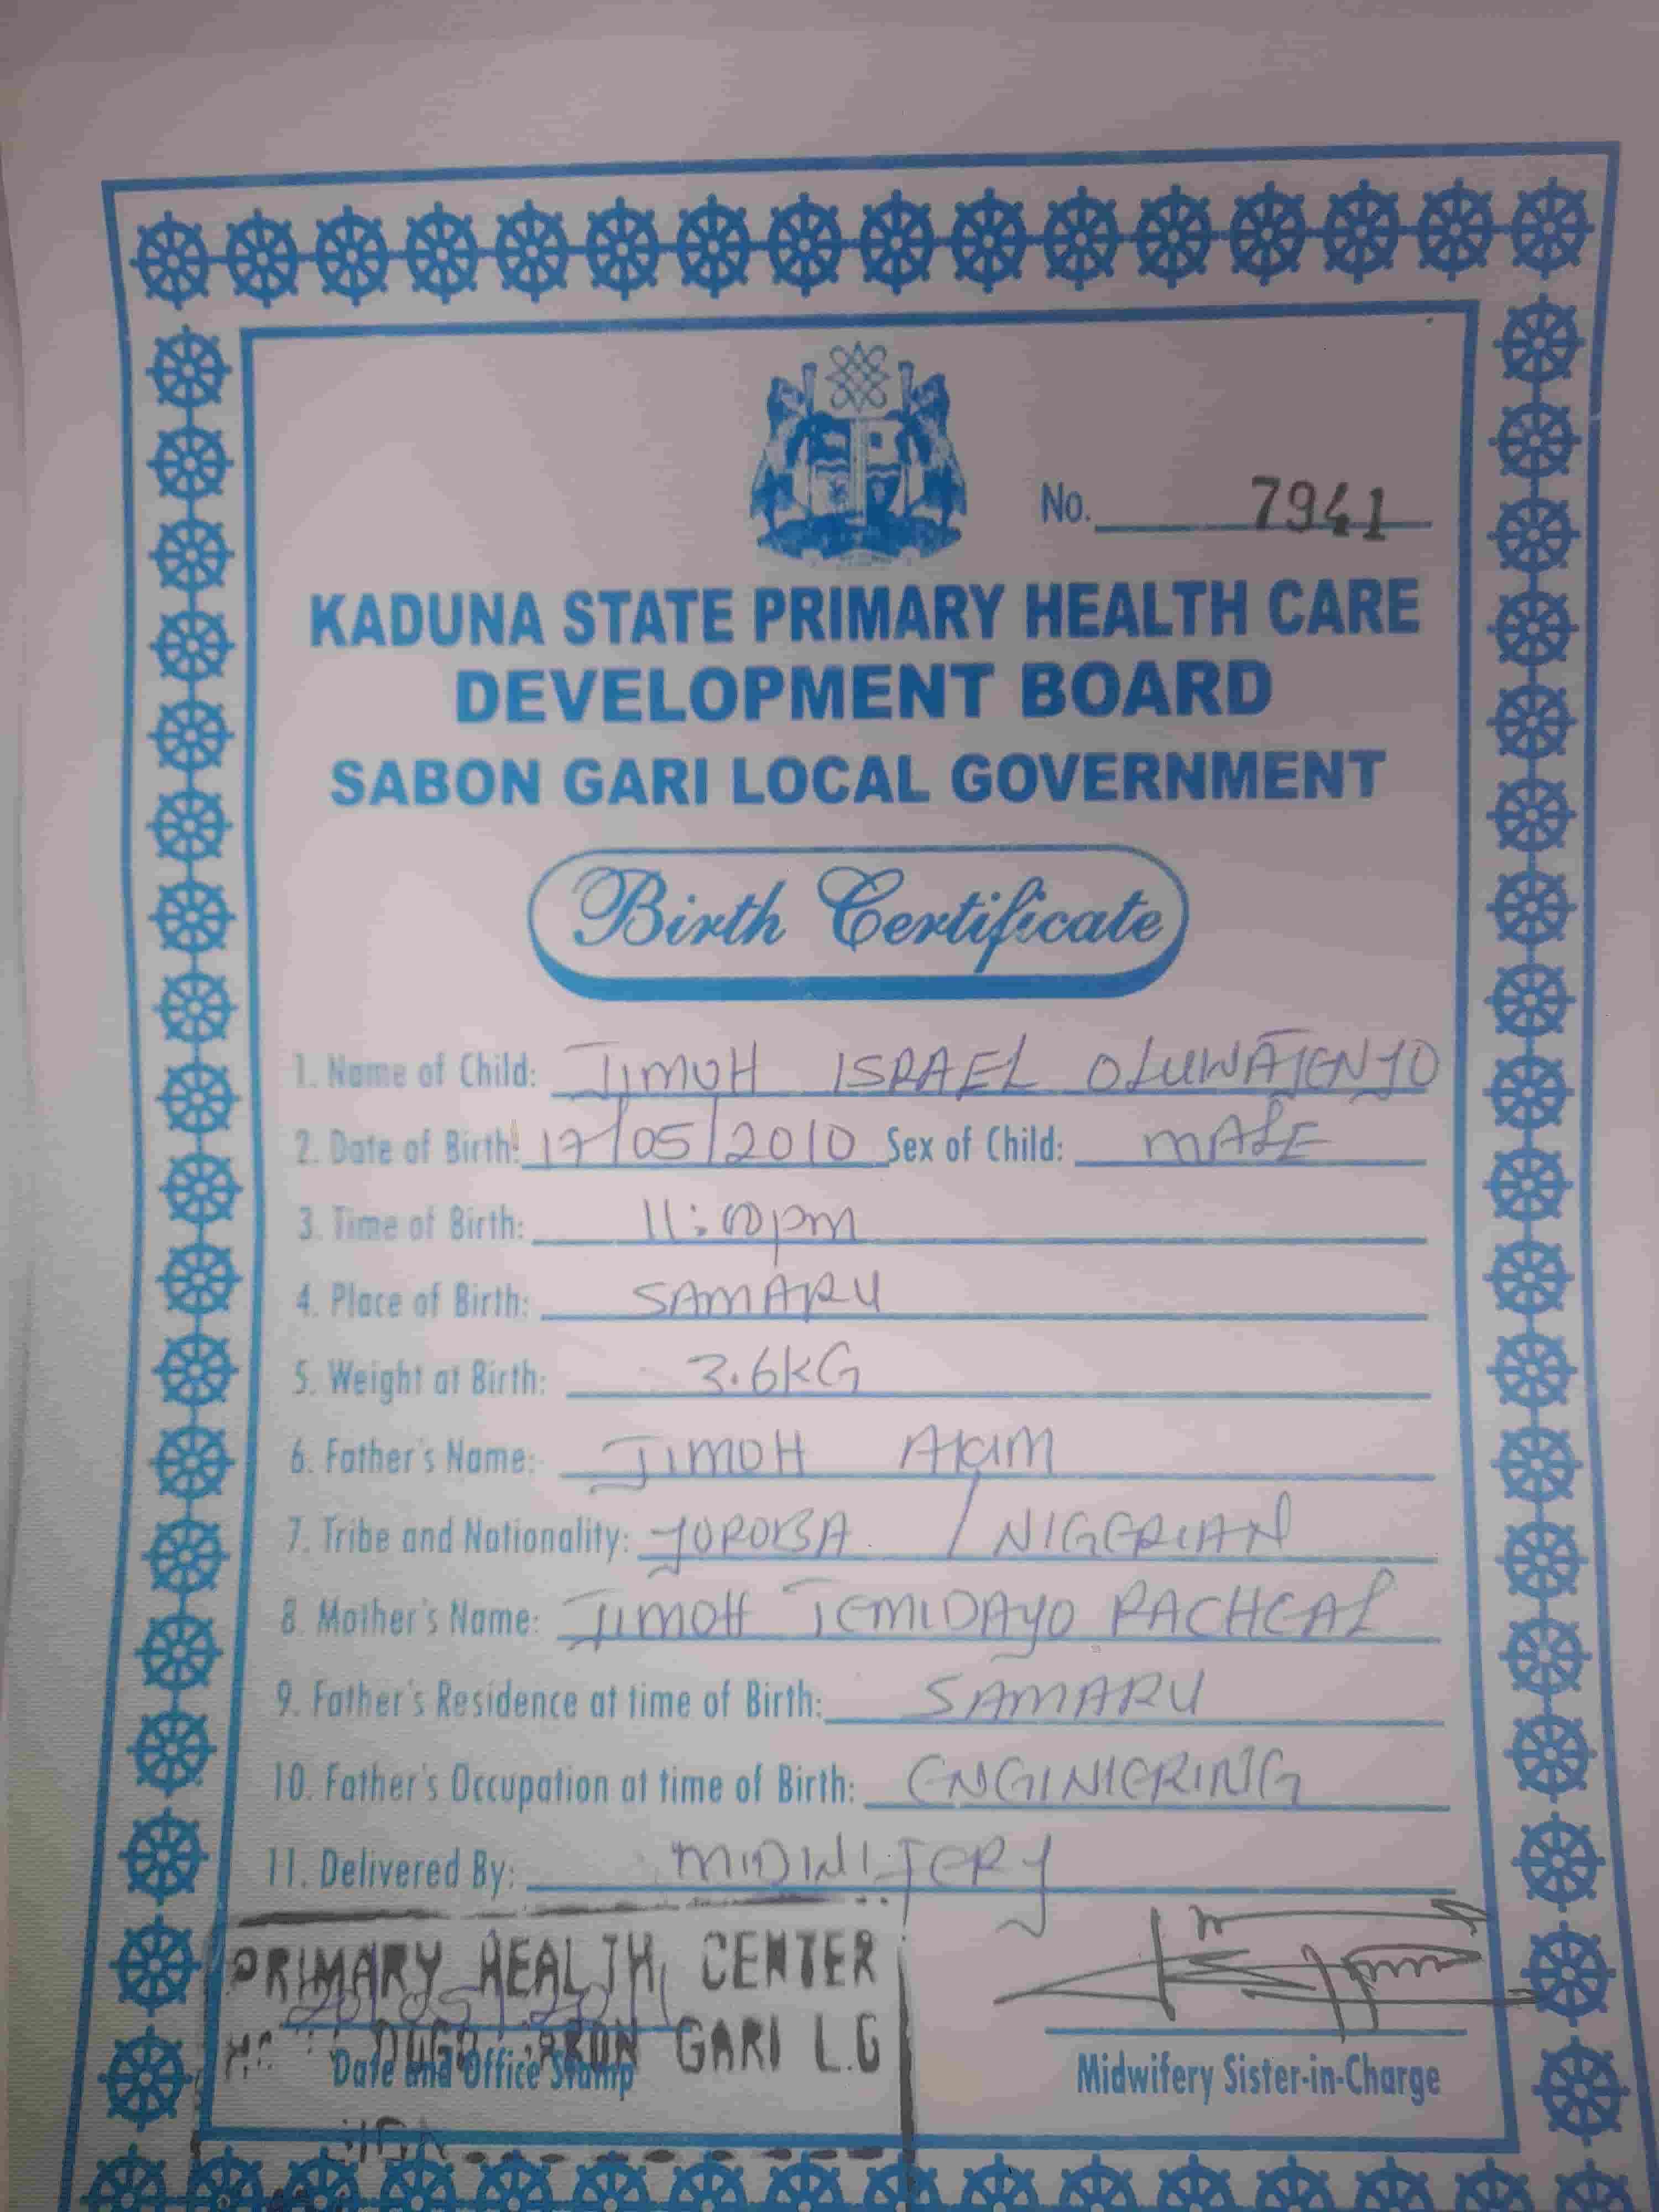 No. 7941
KADUNA STATE PRIMARY HEALTH CARE
DEVELOPMENT BOARD
SABON GARI LOCAL GOVERNMENT
Birth Certificate
1. Name of Child: JIMOH ISRAEL OLUWATENYO
2. Date of Birth: 17/05/2010 Sex of Child: MALE
3. Time of Birth: 11:00pm
4. Place of Birth: SAMARU
5. Weight at Birth: 3.6KG
6. Father's Name: JIMOH AKIM
7. Tribe and Nationality: YOROBA / NIGERIAN
8. Mother's Name: JIMOH TEMIDAYO RACHEAL
9. Father's Residence at time of Birth: SAMARU
10. Father's Occupation at time of Birth: ENGINIERING
11. Delivered By: MIDWIFERY
PRIMARY HEALTH CENTER
GARI L.G
Date and Office Stamp
Midwifery Sister-in-Charge